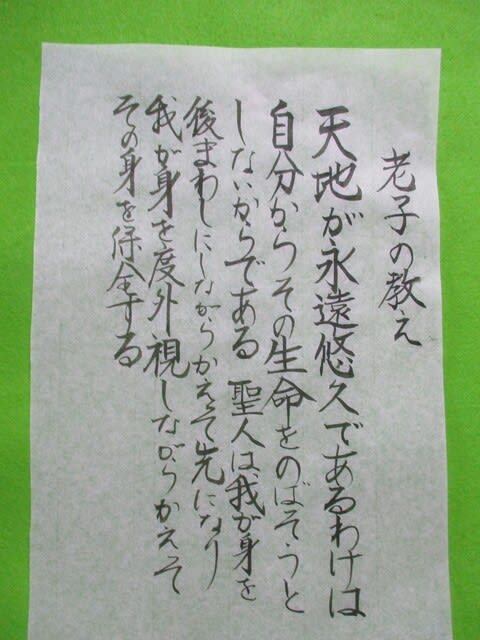 老子の教え
天地が永遠悠久であるわけは
自分からその生命をのばそうと
しないからである 聖人は、我が身を
後まわしにしながらかえって先になり
我が身を度外視しながらかえって
その身を保全する